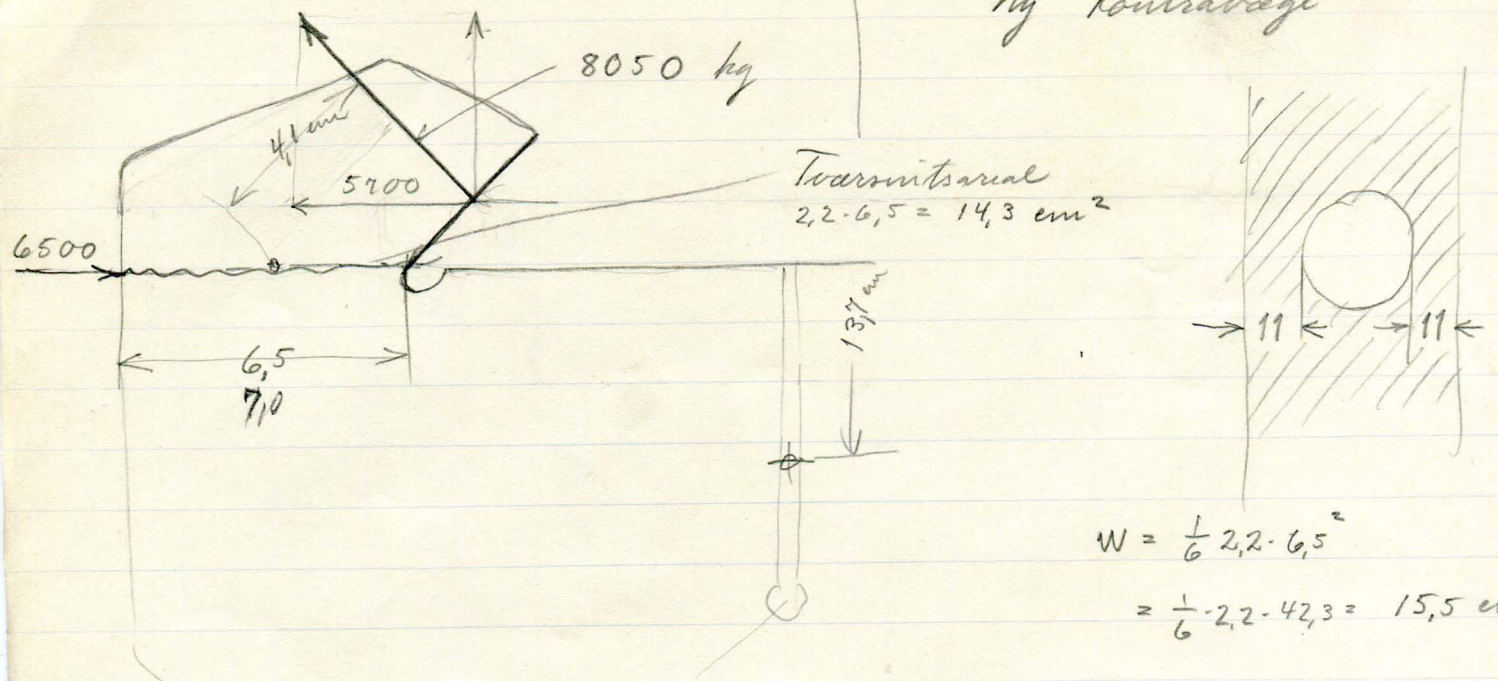 ny Kontravægt
8050 kg
4,1 cm
5700
Tværsnitsareal
2,2·6,5 = 14,3 cm²
6500
13,7 cm
11 11
6,5
7,0
W = 1/6 2,2·6,5²
= 1/6·2,2·42,3 = 15,5